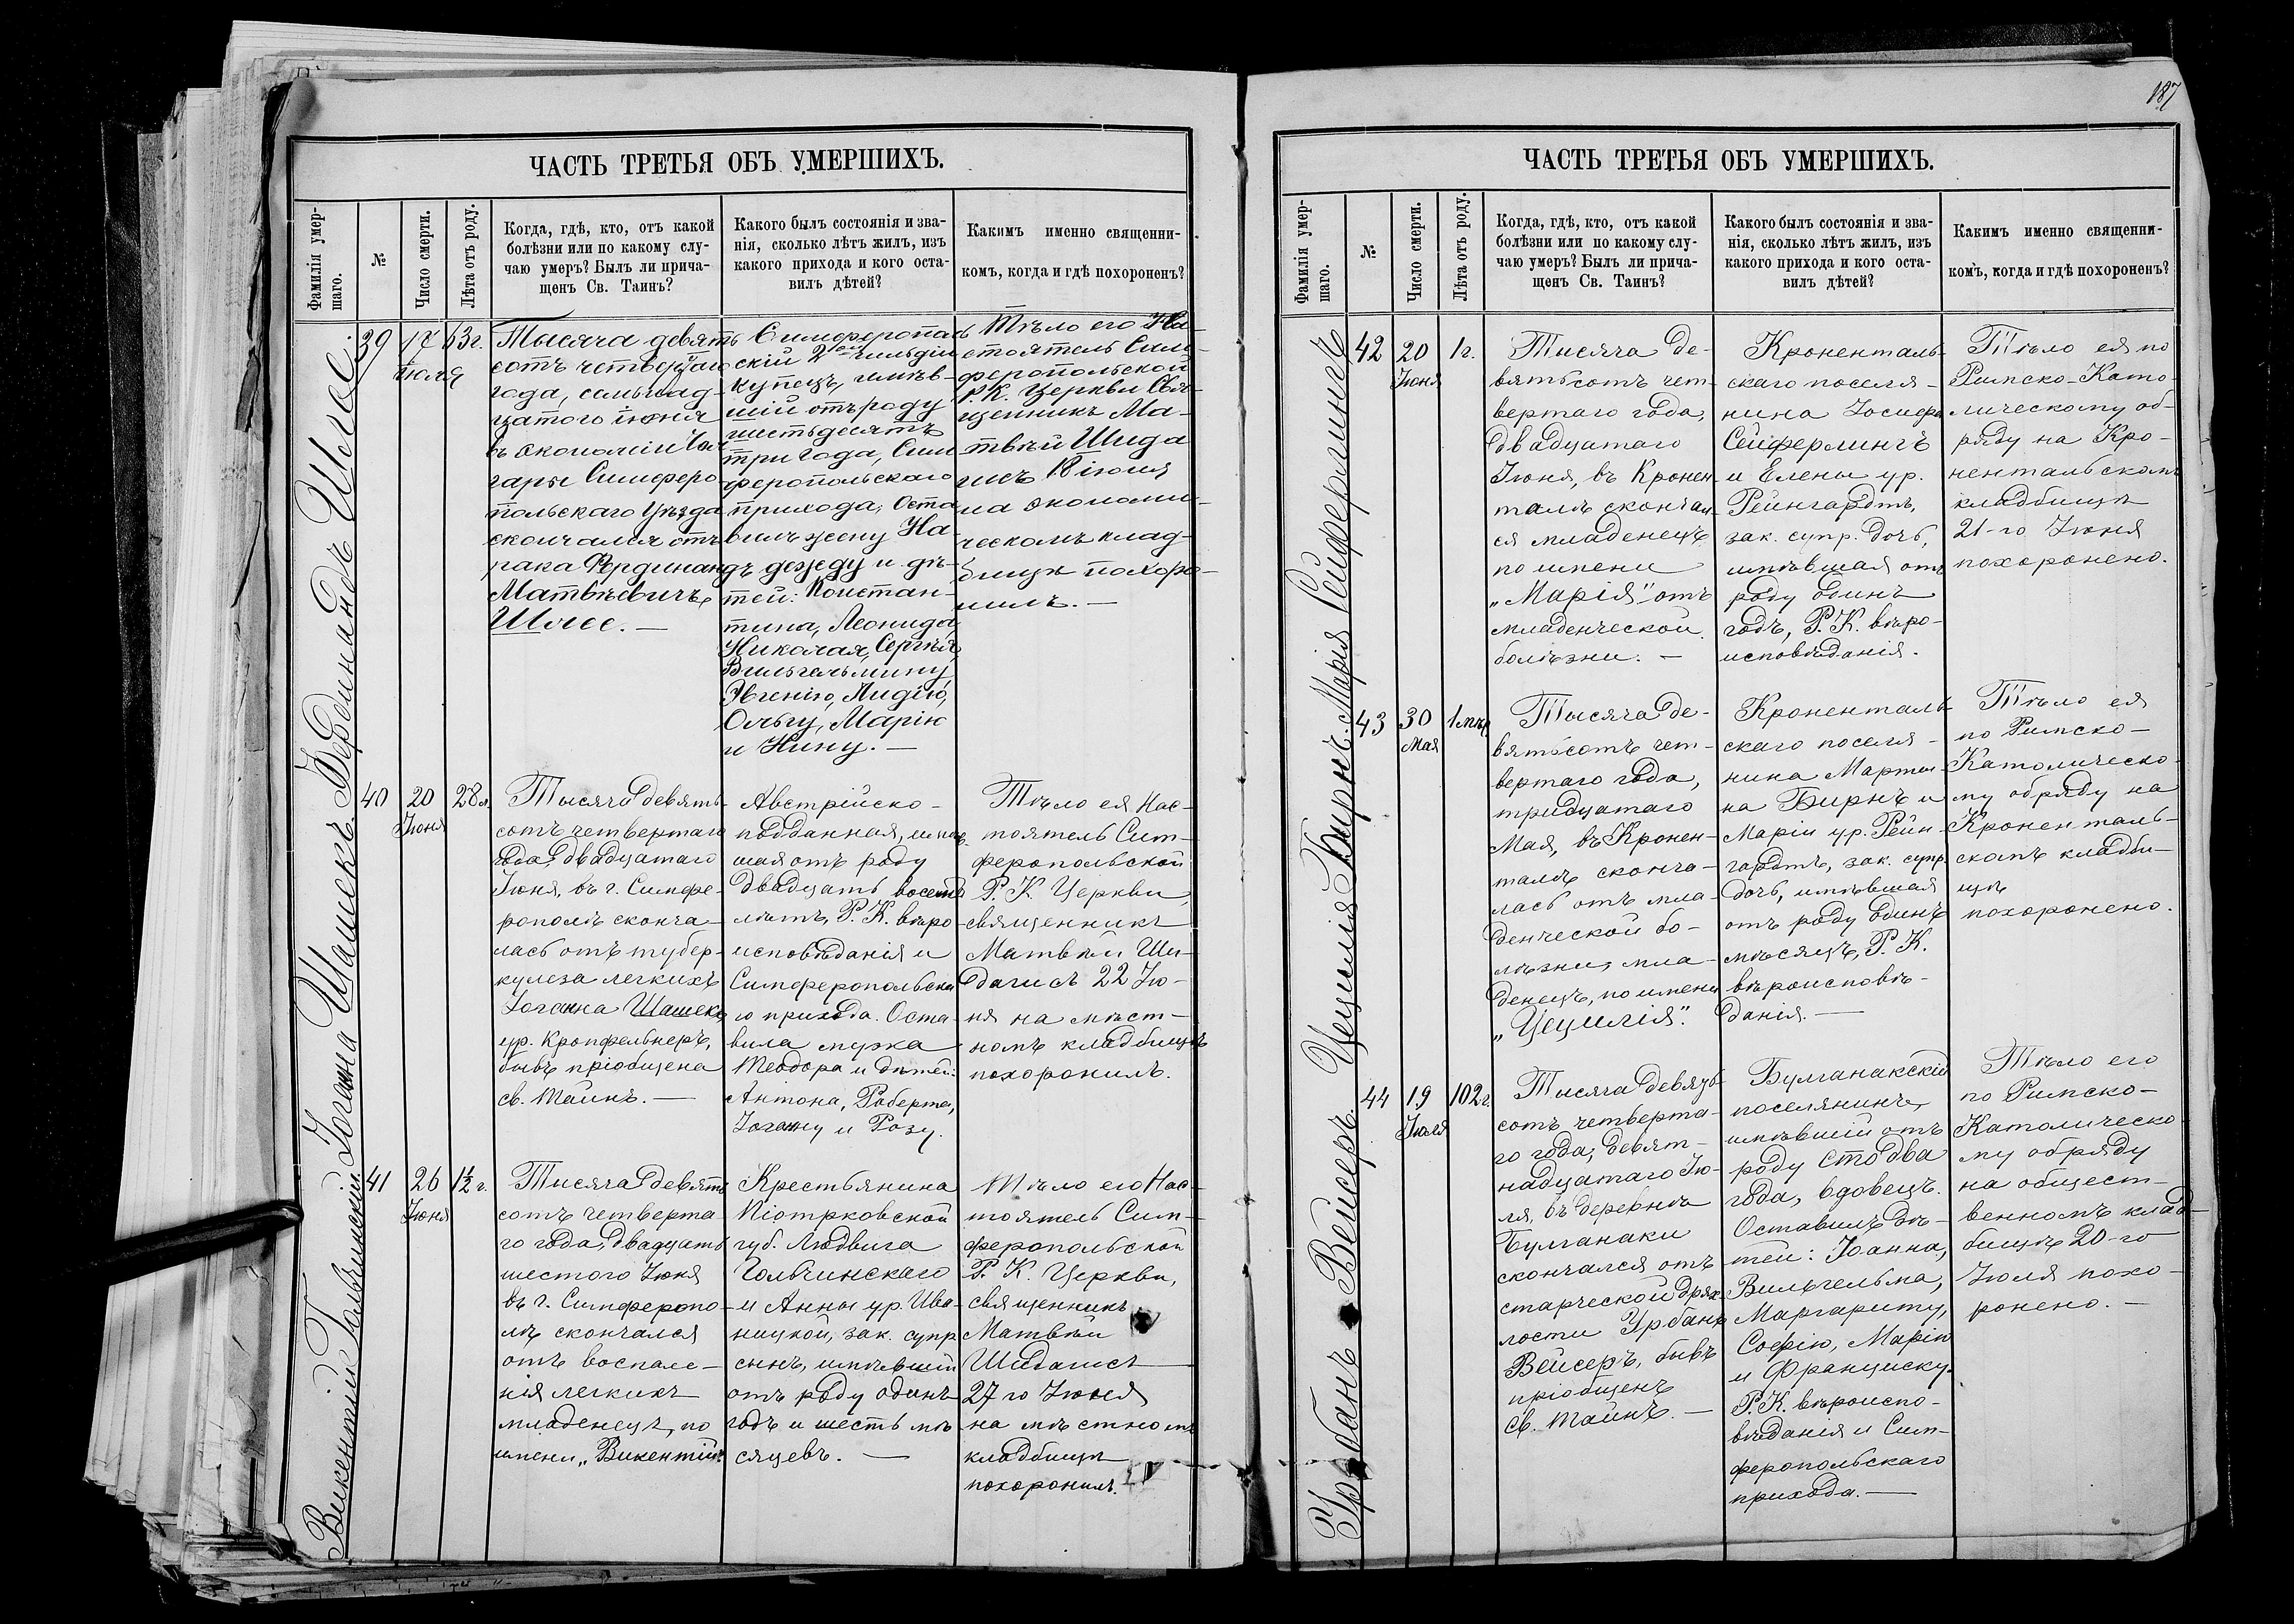 187
ЧАСТЬ ТРЕТЬЯ ОБЪ УМЕРШИХЪ.
Фамилія умер-
шаго.
№
Число смерти.
Лѣта отъ роду.
Когда, гдѣ, кто, отъ какой
болѣзни или по какому слу-
чаю умеръ? Былъ ли прича-
щенъ Св. Таинъ?
Какого былъ состоянія и зва-
нія, сколько лѣтъ жилъ, изъ
какого прихода и кого оста-
вилъ дѣтей?
Каким именно священни-
комъ, когда и гдѣ похороненъ?
Фердинандъ Шлее.
39
17
іюля
63г.
Тысяча девять
сотъ четвертаго
года, семьнад-
цатого іюня
въ экономіи
гары Симферо-
польскаго Уѣзда
скончался отъ
рака Фердинандъ
Матвѣевичъ
Шлее. —
Симферополь
скій 2-ой гильдіи
купецъ, имѣв-
шій отъ роду
шестьдесятъ
три года, Сим
феропольскаго
прихода; Оста
вилъ жену На-
дежду и дѣ-
тей: Констан-
тина, Леонида,
Николая, Сергѣя,
Вильгельмину
Евгенію, Лидію,
Ольгу, Марію
и Нину. —
Тѣло его На-
стоятель Сим-
феропольской
Р.К. Церкви Свя-
щенникъ Ма-
твѣй Шида
гисъ 18 іюля
на экономи-
ческомъ клад-
бищѣ похоро-
нилъ. —
Іоганна Шашекъ.
40
20
Іюня
28л.
Тысяча девять-
сотъ четвертаго
года, двадцатаго
Іюня, въ г. Симфе-
рополѣ сконча-
лась отъ тубер-
кулеза легкихъ
Іоганна Шашекъ
ур. Кропфельнеръ,
бывъ пріобщена
св. Таинъ. —
Австрійско-
подданная, имѣв-
шая отъ роду
двадцать восемь
лѣтъ, Р. К. вѣро
исповѣданія и
Симферопольска
го прихода. Оста-
вила мужа
Теодора и дѣтей:
Антона, Роберта,
Іоганну и Розу.
Тѣло ея Нас-
тоятель Сим-
феропольской
Р. К. Церкви,
священникъ
Матвѣй Ши-
дагисъ 22 Ію-
ня на мѣст-
номъ кладбищѣ
похоронилъ.
Викентій Гольчинскій.
41
26
Іюня
1½ г.
Тысяча девять
сотъ четверта-
го года, двадцать
шестого Іюня
въ г. Симферопо-
лѣ скончался
отъ воспале-
нія легкихъ
младенецъ, по
имени „Викентій“.
Крестьянина
Піотрковской
губ. Людвига
Гольчинскаго
и Анны ур. Ива-
ницкой, зак. супр.
сынъ, имѣвшій
отъ роду одинъ
годъ и шесть мѣ
сяцевъ. —
Тѣло его Нас-
тоятель Сим-
феропольской
Р. К. Церкви,
священникъ
Матвѣй
Шидагисъ
27 го Іюня
на мѣстномъ
кладбищѣ
похоронилъ.
ЧАСТЬ ТРЕТЬЯ ОБЪ УМЕРШИХЪ.
Фамилія умер-
шаго.
№
Число смерти.
Лѣта отъ роду.
Когда, гдѣ, кто, отъ какой
болѣзни или по какому слу-
чаю умеръ? Былъ ли прича-
щенъ Св. Таинъ?
Какого былъ состоянія и зва-
нія, сколько лѣтъ жилъ, изъ
какого прихода и кого оста-
вилъ дѣтей?
Каким именно священни-
комъ, когда и гдѣ похороненъ?
Марія Сейферлингъ
42
20
Іюня
1г.
Тысяча де-
вятьсотъ чет-
вертаго года,
двадцатаго
Іюня, въ Кронен
талѣ скончал-
ся младенецъ
по имени
„Марія“ отъ
младенческой
болѣзни. —
Кроненталь-
скаго поселя-
нина Іосифа
Сейферлингъ
и Елены ур.
Рейнгардтъ,
зак. супр. дочь,
имѣвшая отъ
роду одинъ
годъ, Р. К. вѣро-
исповѣданія.
Тѣло ея по
Римско-Като-
лическому об-
ряду на Кро-
нентальскомъ
кладбищѣ
21-го Іюня
похоронено.
Цецилія Бирнъ.
43
30
Мая
1 мѣс.
Тысяча де-
вятьсотъ чет-
вертаго года,
тридцатаго
Мая, въ Кронен-
талѣ сконча-
лась отъ мла-
денческой бо-
лѣзни, мла-
денецъ, по имени
„Цецилія“.
Кроненталь-
скаго поселя-
нина Марти-
на Бирнъ и
Маріи ур. Рейн-
гардтъ, зак. супр.
дочь, имѣвшая
отъ роду одинъ
мѣсяцъ, Р. К.
вѣроисповѣ-
данія. —
Тѣло ея
по Римско-
Католическо-
му обряду на
Кроненталь-
скомъ кладби-
щѣ
похоронено.
Урбанъ Вейсеръ.
44
19
Іюля
102г.
Тысяча девять-
сотъ четверта-
го года, девят-
надцатаго Ію-
ля, въ деревнѣ
Булганаки
скончался отъ
старческой дрях-
лости Урбанъ
Вейсеръ, бывъ
пріобщенъ
св. Таинъ. —
Булганакскій
поселянинъ,
имѣвшій отъ
роду сто два
года, вдовецъ.
Оставилъ дѣ-
тей: Іоанна,
Вильгельма,
Маргариту,
Софію, Марію
и Франциску.
Р. К. вѣроиспо-
вѣданія и Сим-
феропольскаго
прихода. —
Тѣло его
по Римско-
Католическо-
му обряду
на общест-
венномъ клад-
бищѣ 20-го
Іюля похо-
ронено. —